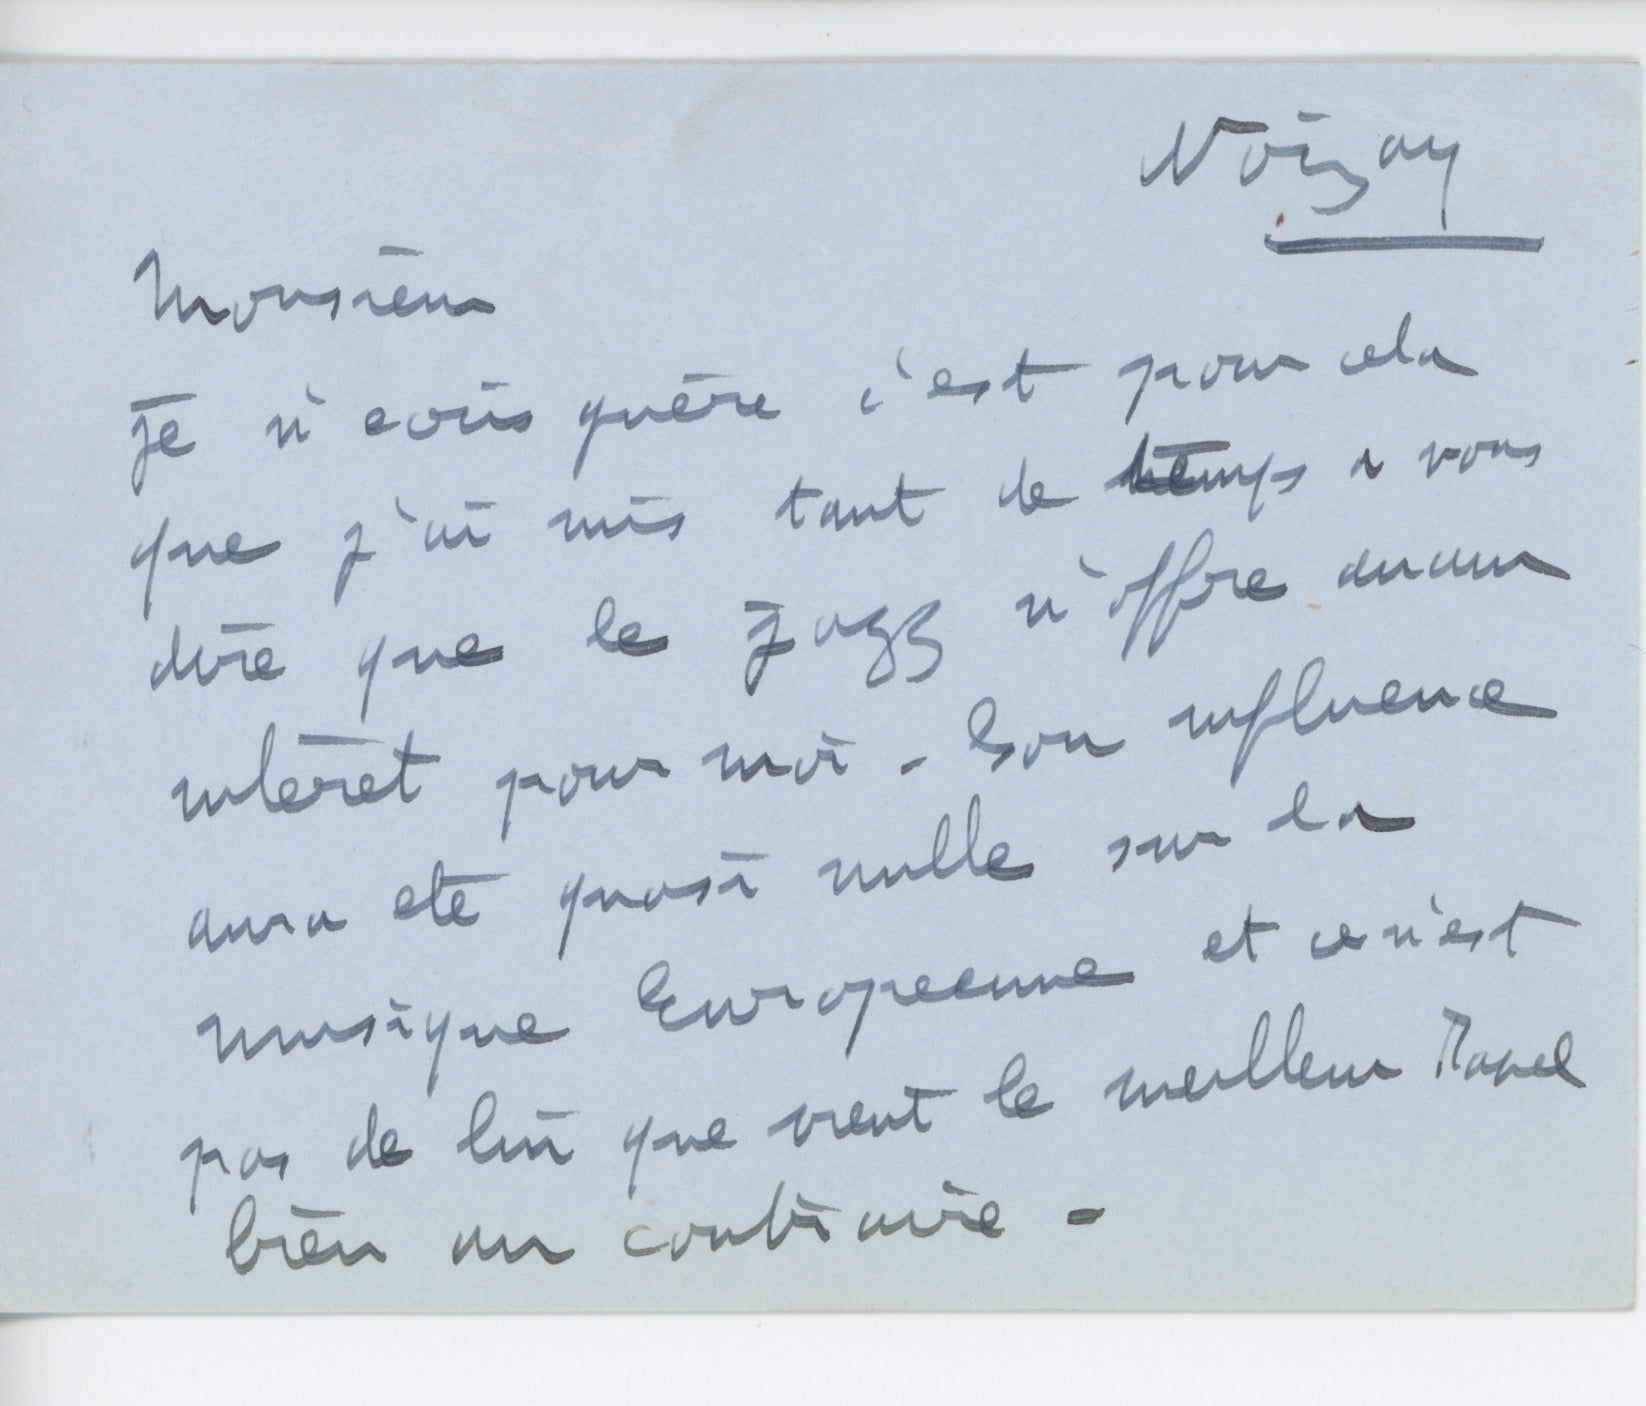 Noizay
Monsieur
Je n'écris guère c'est pour cela
que j'ai mis tant de temps a vous
dire que le Jazz n'offre aucun
intérêt pour moi - Son influence
aura été quasi nulle sur la
musique Européenne et ce n'est
pas de lui que vient le meilleur Ravel
bien au contraire -